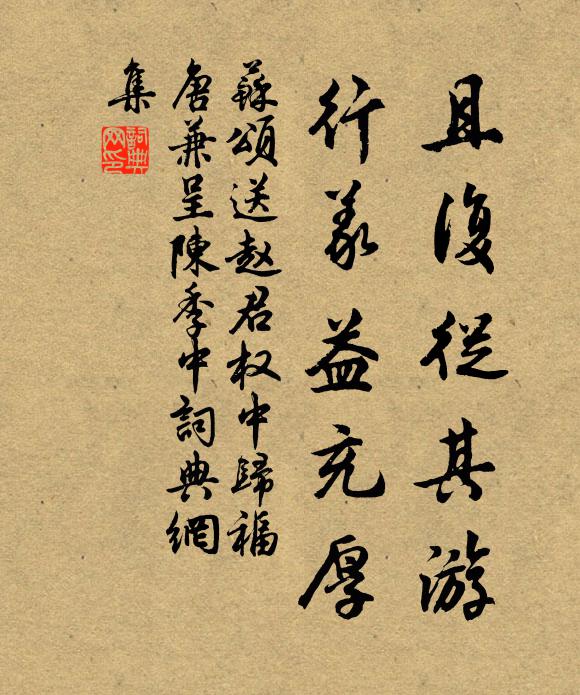 且復從其游
行義益充厚
蘇頌送赵君权中歸福
唐兼呈陳季中詞典網
集
詞典
网印